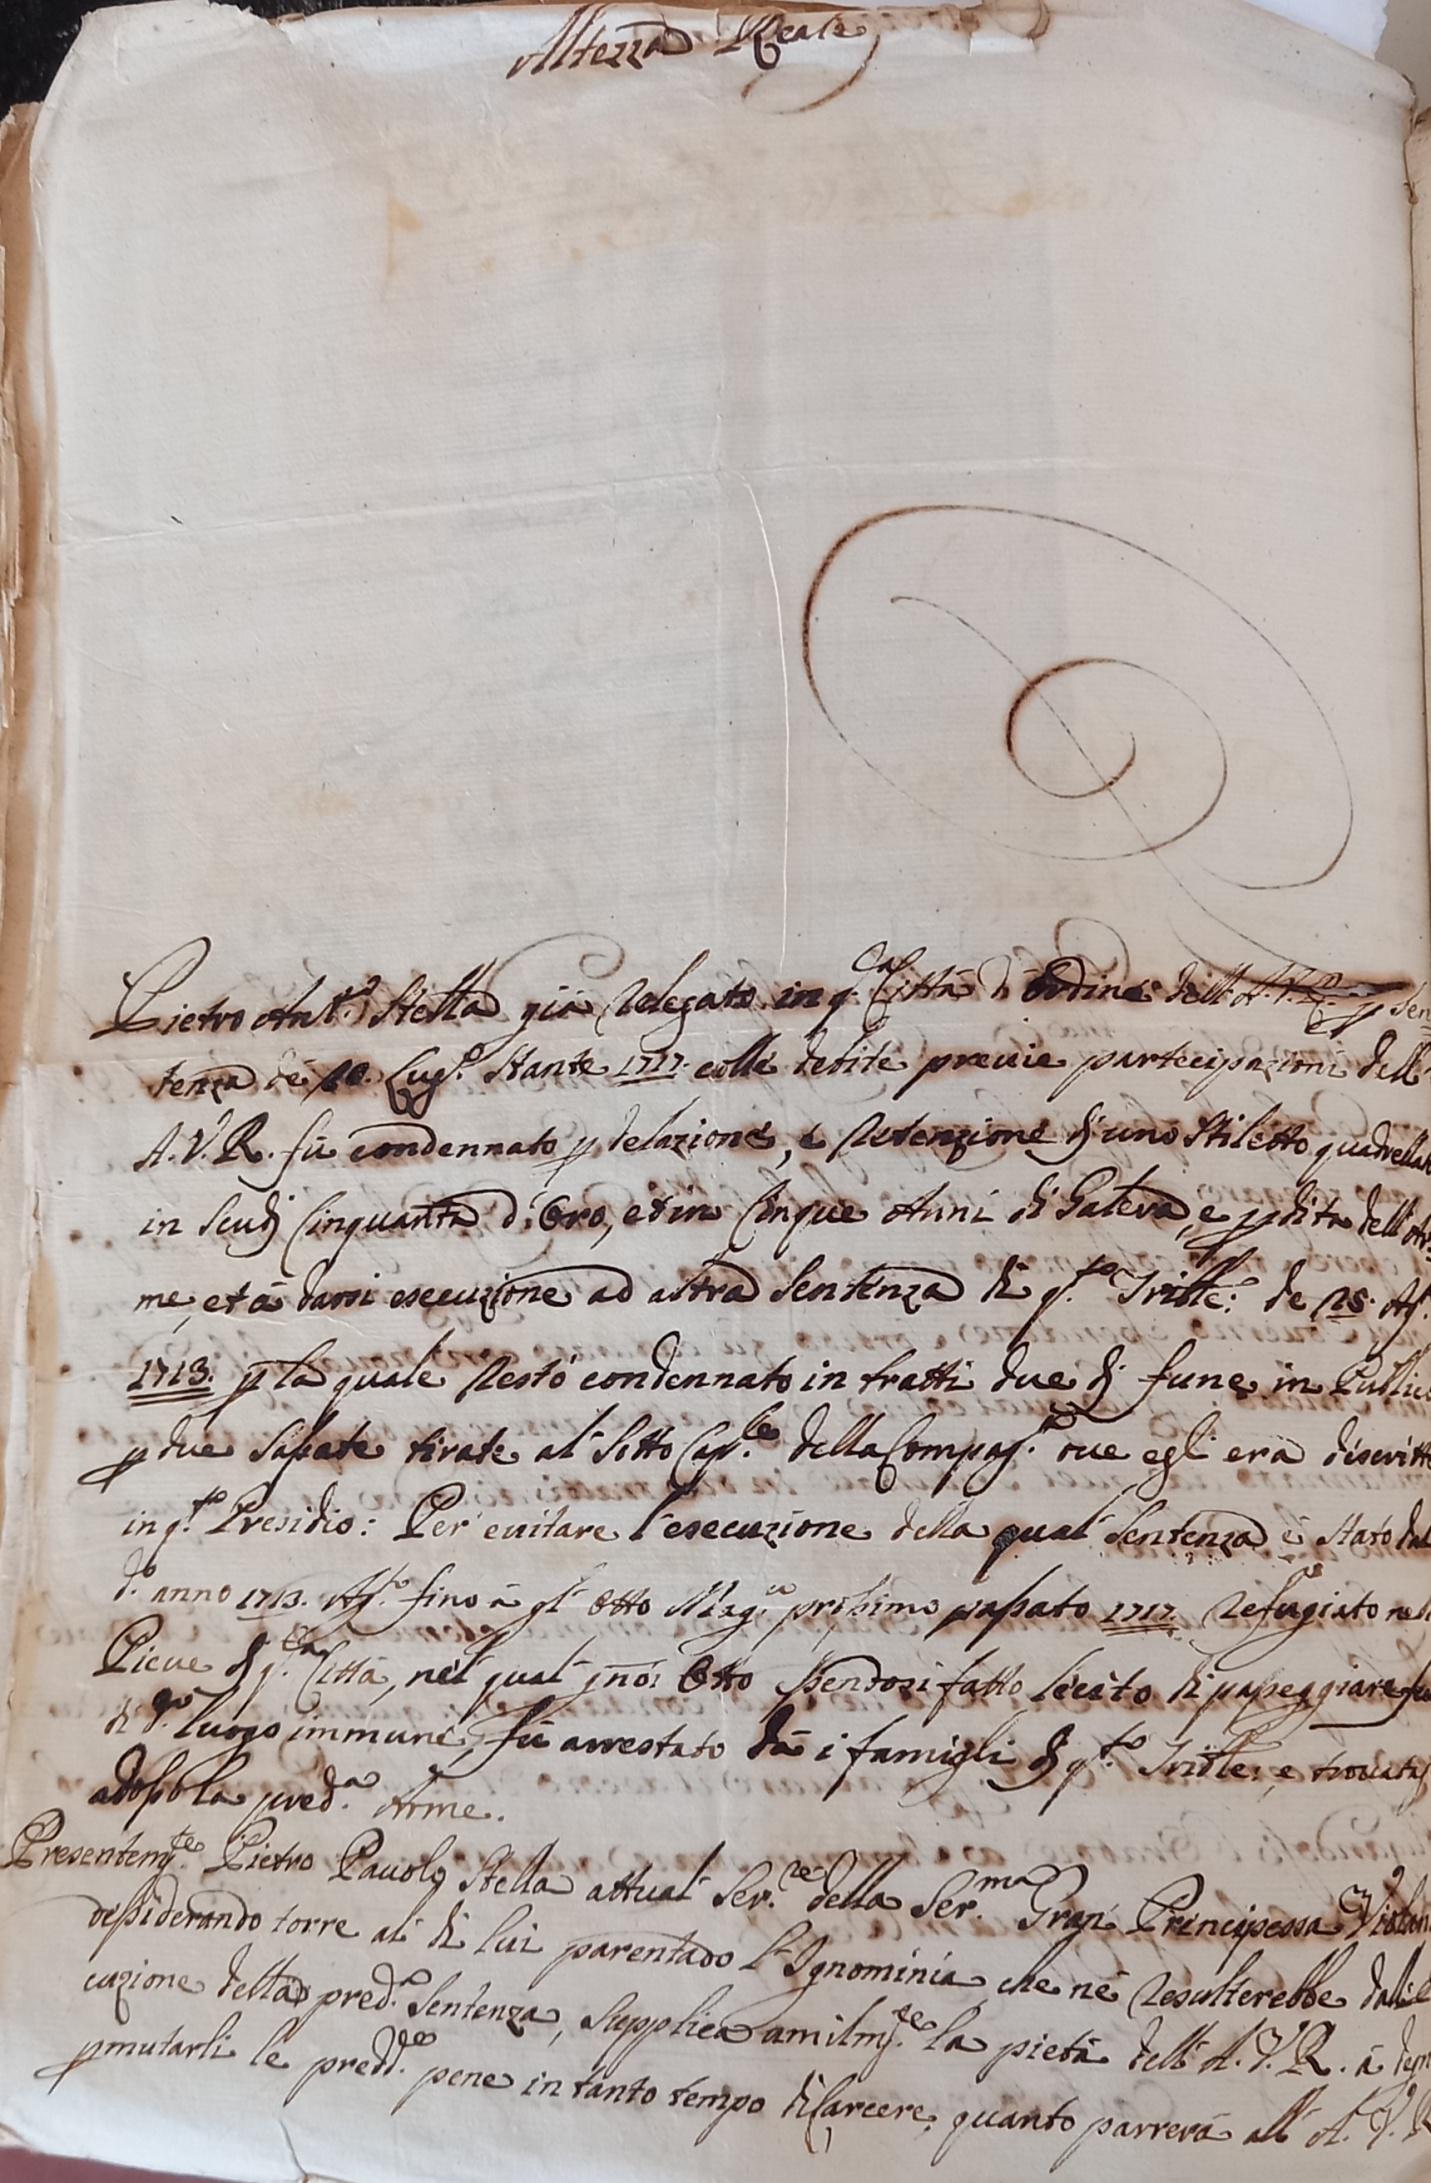 Altezza Reale
Pietro Ant.o Stella già relegato in q.ta Città d'ordine dell' A.V.R. p Sen
tenza de 10. Lug.o Stante 1717. colle debite previe partecipazioni dell'
A.V.R. fù condennato p delazione, e retenzione di uno Stiletto quadrella
in Scudi Cinquanta d'Oro, et in Cinque Anni di Galera, e pdita dell' Ar
me, et à darsi esecuzione ad altra Sentenza di q.to Trible: de 25. Ag.
1713. p la quale restò condennato in tratti due di fune in Publico
p due Sassate tirate al Sotto Cap.le della Compag.a ove egli era discritto
in q.to Presidio: Per evitare l'esecuzione della qual Sentenza è stato dal
d.o anno 1713. Ag.to fino à gl' Otto Mag.o prossimo passato 1717. refugiato nell
Pieve di q.ta Città, nel qual gno: Otto essendosi fatto lecito di passeggiare fu
di d.o luogo immune, fù arrestato dà i famigli di q.to Trible: e trovata
adosso la pred.a Arme.
Presentem.te Pietro Pauolo Stella attual Ser.re della Ser.ma Gran Principessa Violan
desiderando torre al di lui parentado l'Ignominia che ne resulterebbe dall' e
cuzione della pred.a Sentenza, Supplica umilm.te la pietà dell' A.V.R. à
pmutarli le predd.e pene in tanto tempo di Carcere, quanto parrerà all' A.V.R